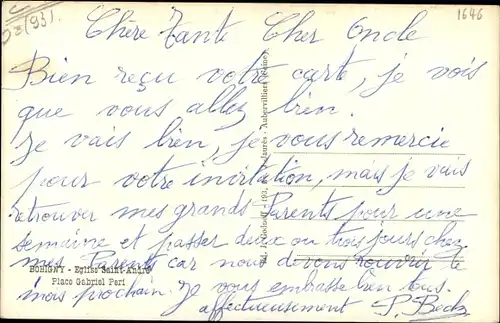 Dz (93).
1646
Chère Tante Cher Oncle
Bien reçu votre carte, je vois
que vous allez bien.
je vais bien, je vous remercie
pour votre invitation, mais je vais
retrouver mes grands Parents pour une
semaine et passer deux ou trois jours chez
mes Parents car nous devons rouvrir le
mois prochain. Je vous embrasse bien tous.
affectueusement P.
BOBIGNY - Eglise Saint-André
Place Gabriel Peri
193, Jaurès, Aubervilliers (Seine)